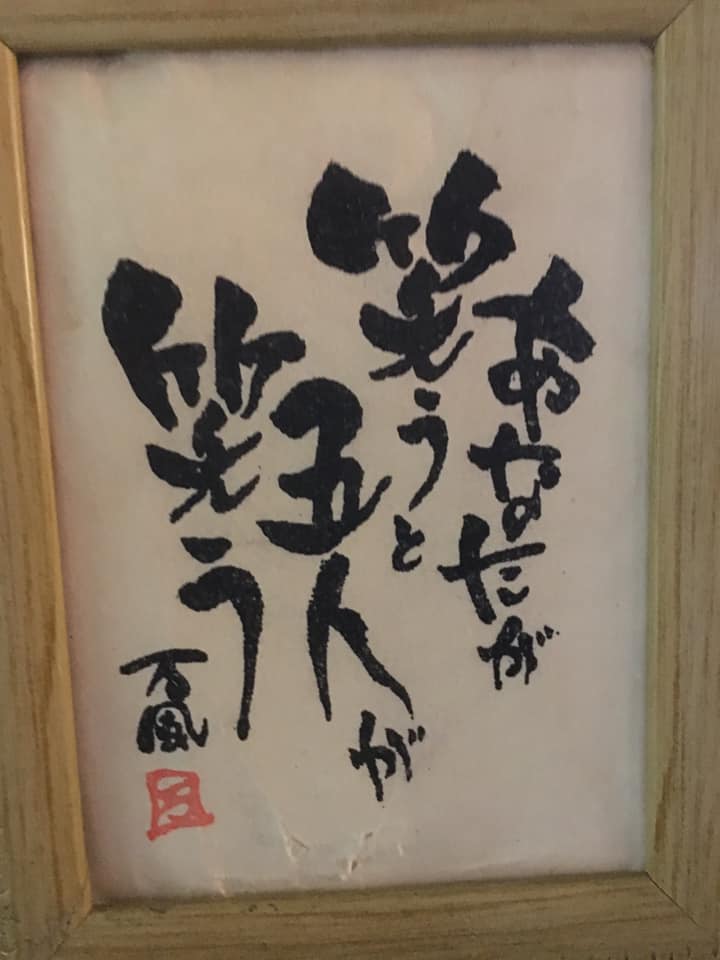 あなたが
笑うと
五人が
笑う
万風